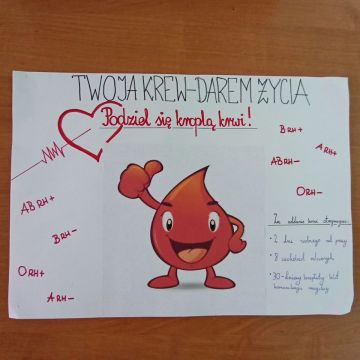 TWOJA KREW-DAREM ŻYCIA
Podziel się kroplą krwi!
B RH+
A RH+
ABRH-
ORH-
ABRH+
BRH-
ORH+
ARH-
Za oddanie krwi otrzymujesz:
• 2 dni wolnego od pracy
• 8 czekolad
• 30-dniowy bezpłatny bilet
komunikacji miejskiej